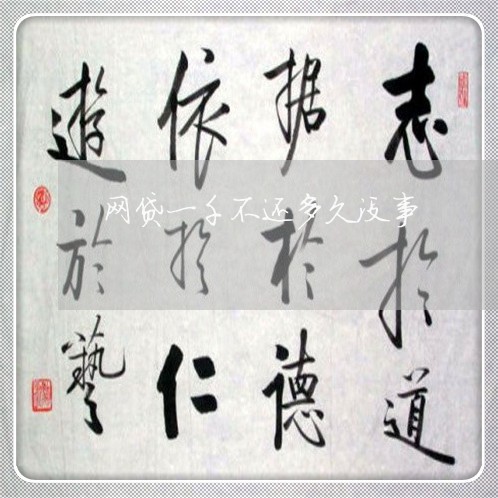 志於道
据於德
依於仁
遊於藝
网贷一千不还多久没事